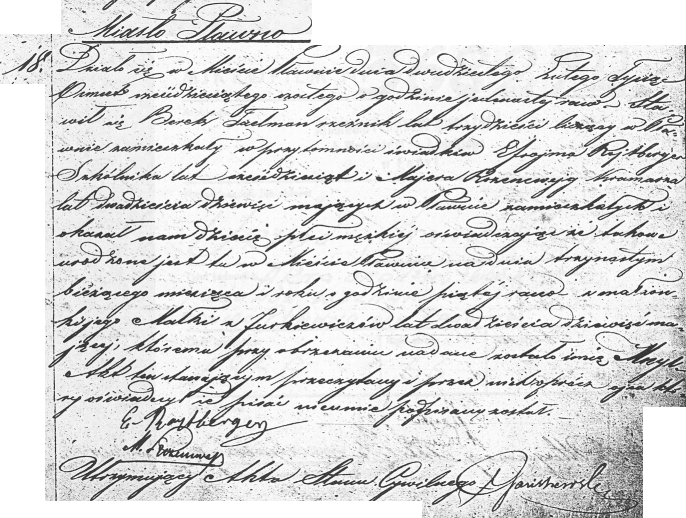 Miasto Pławno
18. Działo się w Mieście Pławnie dnia dwudziestego Lutego Tysiąc
Ośmset sześćdziesiątego szóstego o godzinie jedenastej rano. Sta-
wił się Berek Faelman rzeźnik lat trzydzieści liczący w Pła-
wnie zamieszkały w przytomności świadków Efrojma Rejtbergen
Szkolnika lat sześćdziesiąt i Majera Rozencwajg kramarza
lat dwadzieścia dziewięć mających w Pławnie zamieszkałych i
okazał nam dziecię płci męzkiej oświadczając że takowe
urodzone jest tu w Mieście Pławnie na dniu trzynastym
bieżącego miesiąca i roku o godzinie piątéj rano z małżon-
ki jego Małki z Jurkiewiczów lat dwadzieścia dziewięć ma-
jącej, któremu przy obrzezaniu nadane zostało imię
Akt ten stawającym przeczytany i przez nich oprócz ojca któ-
ry oświadczył iż pisać nieumie podpisany został.
E. Raytbergen
M. Rozencwajg
Utrzymujący Akta Stanu Cywilnego